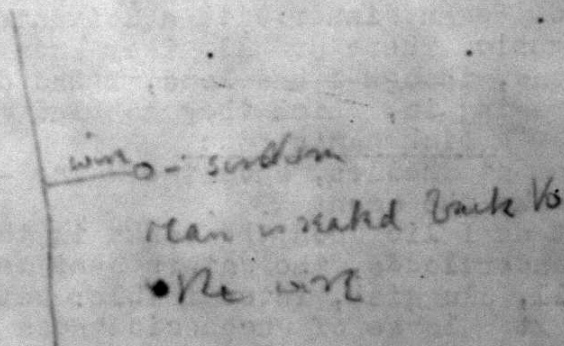 wire -
Man is seated back to
the wire